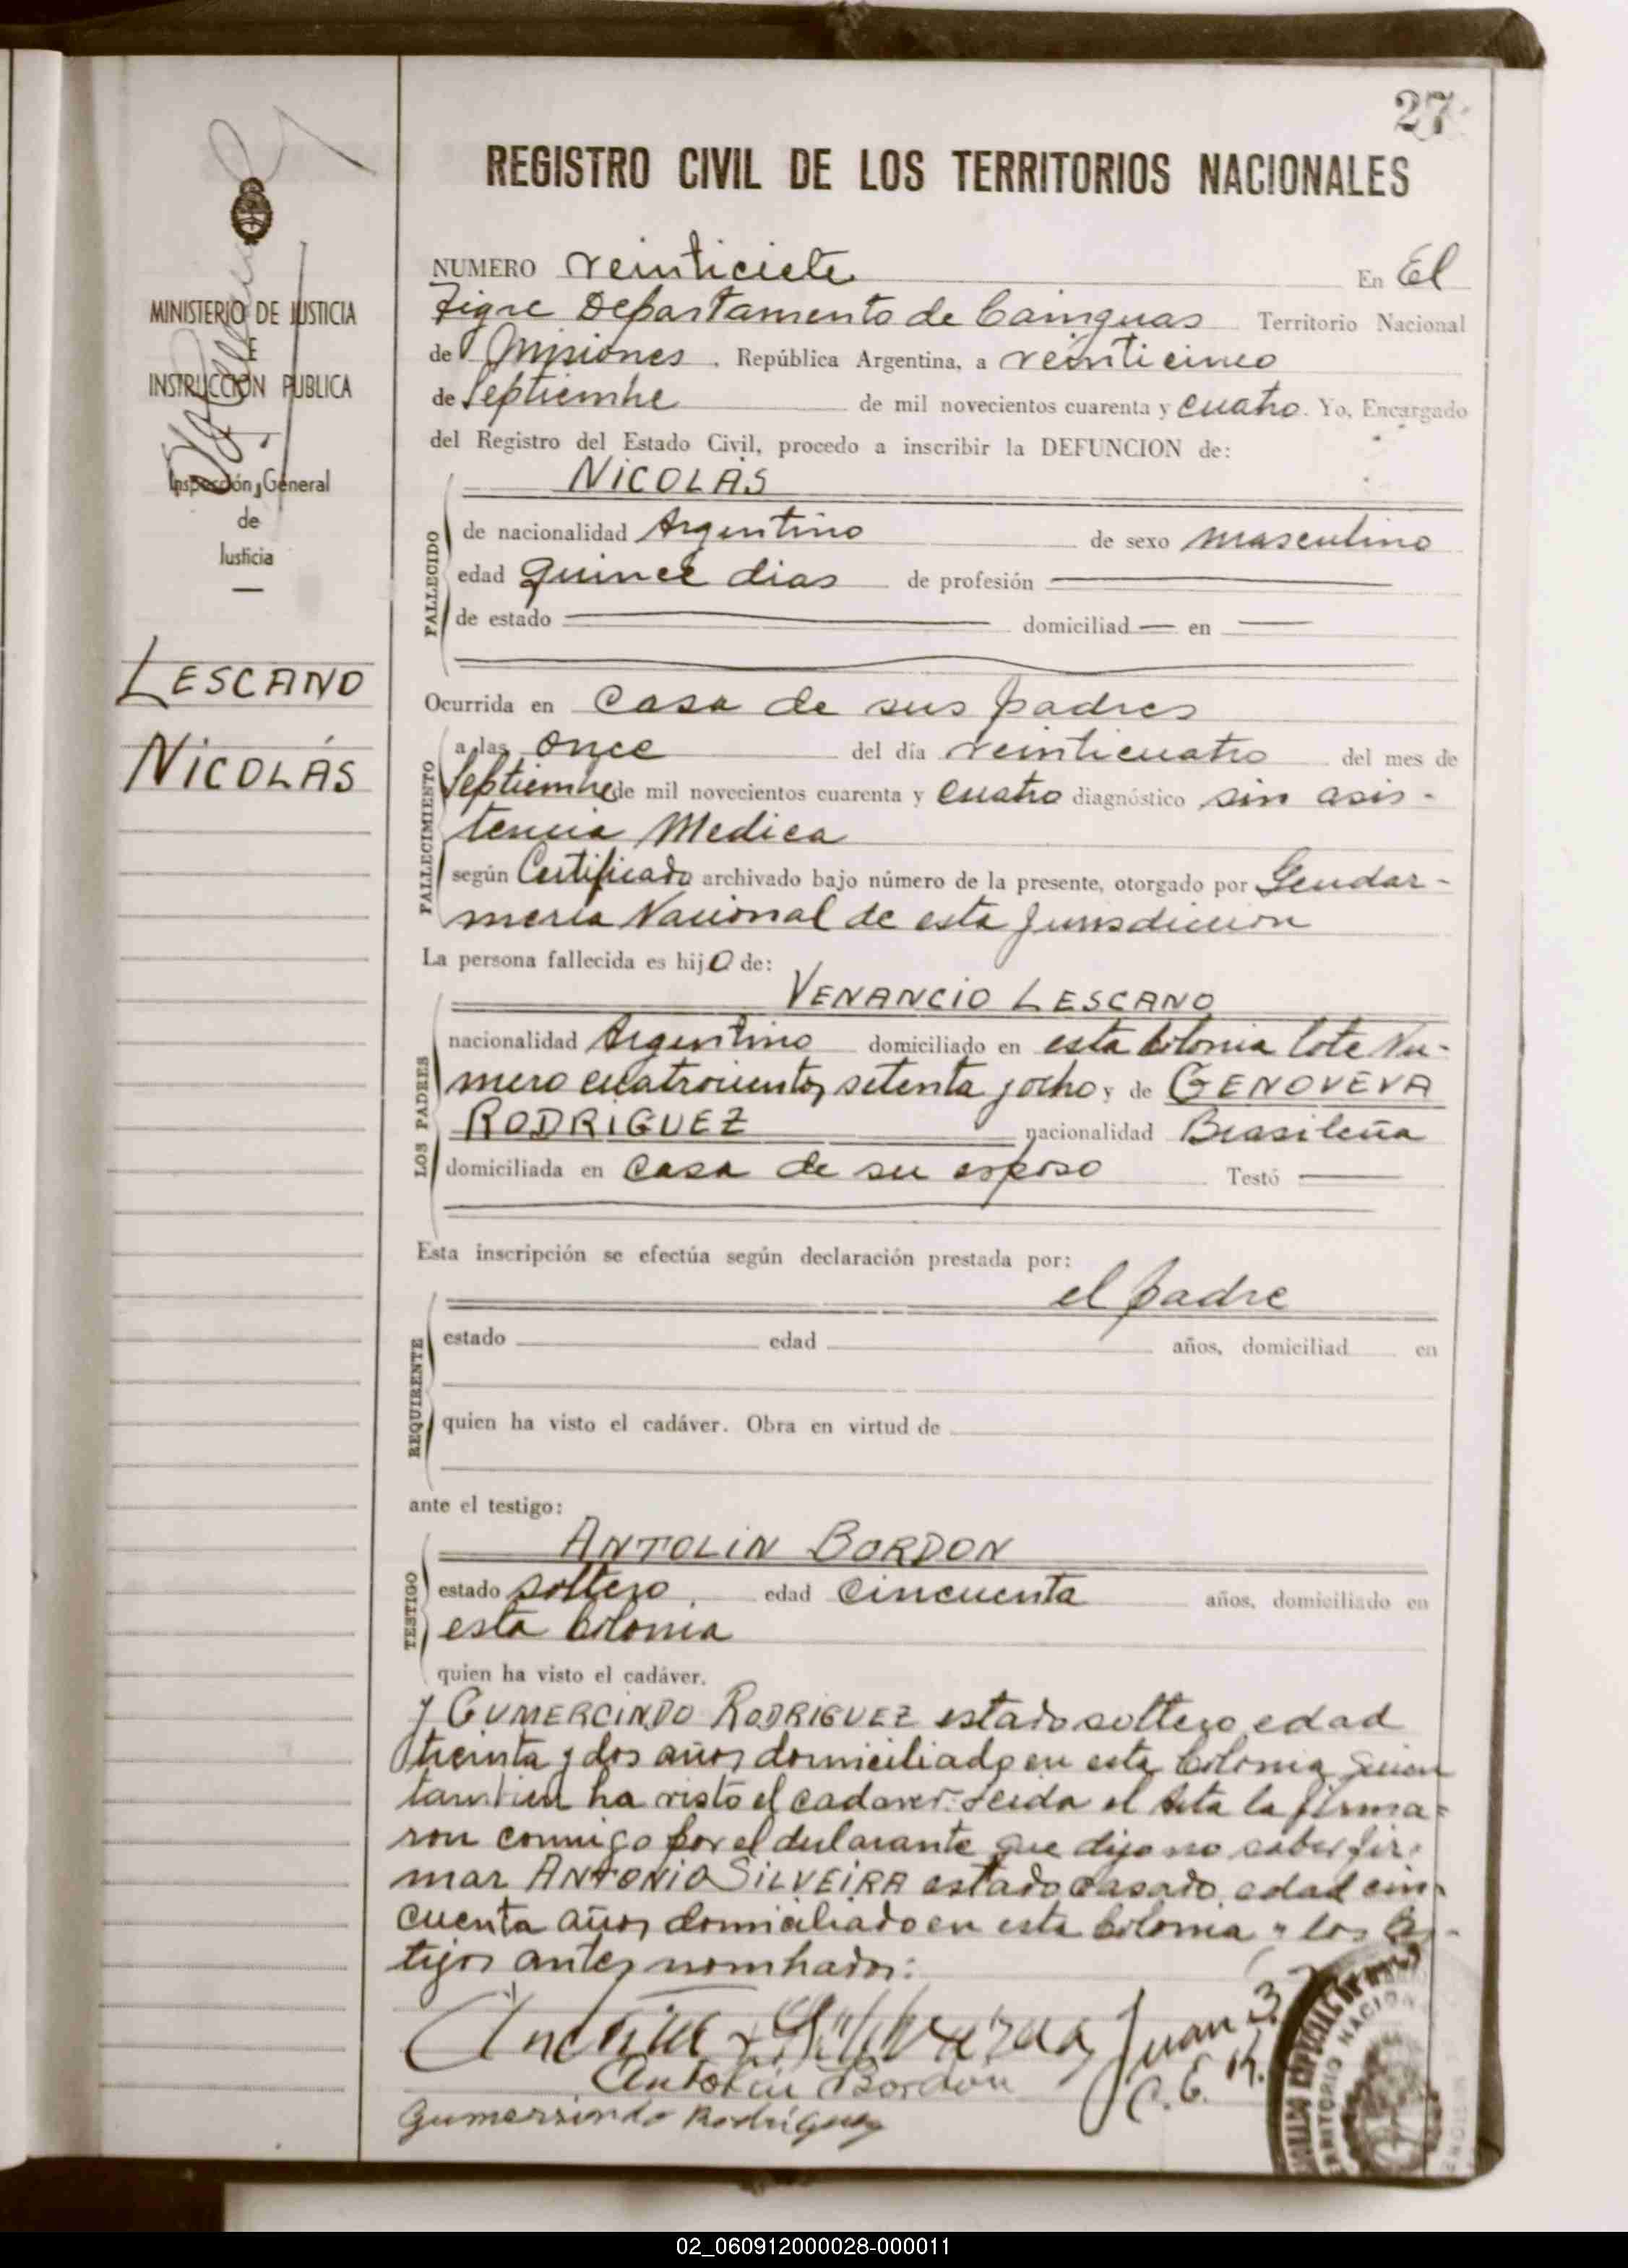 27
REGISTRO CIVIL DE LOS TERRITORIOS NACIONALES
MINISTERIO DE JUSTICIA
E
INSTRUCCION PUBLICA
Inspección General
de
Justicia
LESCANO
NICOLÁS
NUMERO veinticiete En El
Tigre Departamento de Cainguas Territorio Nacional
de Misiones, República Argentina, a veinticinco
de Septiembre de mil novecientos cuarenta y cuatro. Yo, Encargado
del Registro del Estado Civil, procedo a inscribir la DEFUNCION de:
NICOLÁS
FALLECIDO
de nacionalidad Argentino de sexo masculino
edad quince dias de profesión
de estado domiciliad en
Ocurrida en casa de sus padres
FALLECIMIENTO
a las once del día veinticuatro del mes de
Septiembre de mil novecientos cuarenta y cuatro diagnóstico sin asis-
tencia Medica
según Certificado archivado bajo número de la presente, otorgado por Gendar-
meria Nacional de esta Jurisdiccion
La persona fallecida es hijo de:
VENANCIO LESCANO
LOS PADRES
nacionalidad Argentino domiciliado en esta Colonia lote Nu-
mero cuatrocientos setenta y ocho y de GENOVEVA
RODRIGUEZ nacionalidad Brasileña
domiciliada en casa de su esposo Testó
Esta inscripción se efectúa según declaración prestada por:
el padre
REQUIRENTE
estado edad años, domiciliad en
quien ha visto el cadáver. Obra en virtud de
ante el testigo:
ANTOLIN BORDON
TESTIGO
estado soltero, edad cincuenta años, domiciliado en
esta Colonia
quien ha visto el cadáver.
y GUMERCINDO RODRIGUEZ estado soltero edad
treinta y dos años domiciliado en esta Colonia quien
tambien ha visto el cadaver. Leida el Acta la firma=
ron conmigo por el declarante que dijo no saber fir=
mar ANTONIO SILVEIRA estado casado, edad cin-
cuenta años domiciliado en esta Colonia y los tes-
tigos antes nombrados:
Antolin Bordon
Juan B.
Gumersindo Rodriguez
02_060912000028-000011